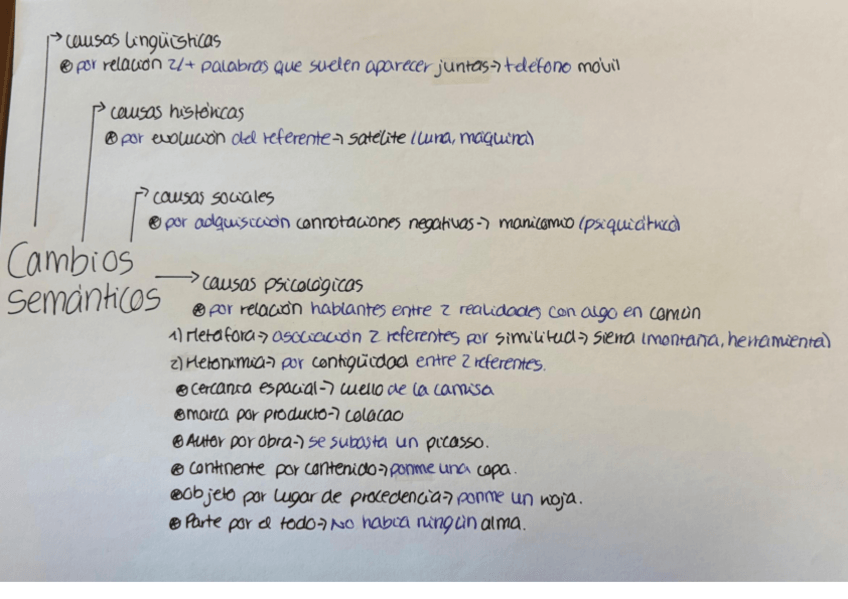 → causas lingüísticas
● por relación 2/+ palabras que suelen aparecer juntas → teléfono móvil
→ causas históricas
● por evolución del referente → satélite (luna, máquina)
→ causas sociales
● por adquisición connotaciones negativas → manicomio (psiquiátrico)
Cambios
semánticos
→ causas psicológicas
● por relación hablantes entre 2 realidades con algo en común
1) Metáfora → asociación 2 referentes por similitud → sierra (montaña, herramienta)
2) Metonimia → por contigüidad entre 2 referentes.
● cercanía espacial → cuello de la camisa
● marca por producto → colacao
● Autor por obra → se subasta un picasso.
● continente por contenido → ponme una copa.
● objeto por lugar de procedencia → ponme un rioja.
● Parte por el todo → No había ningún alma.